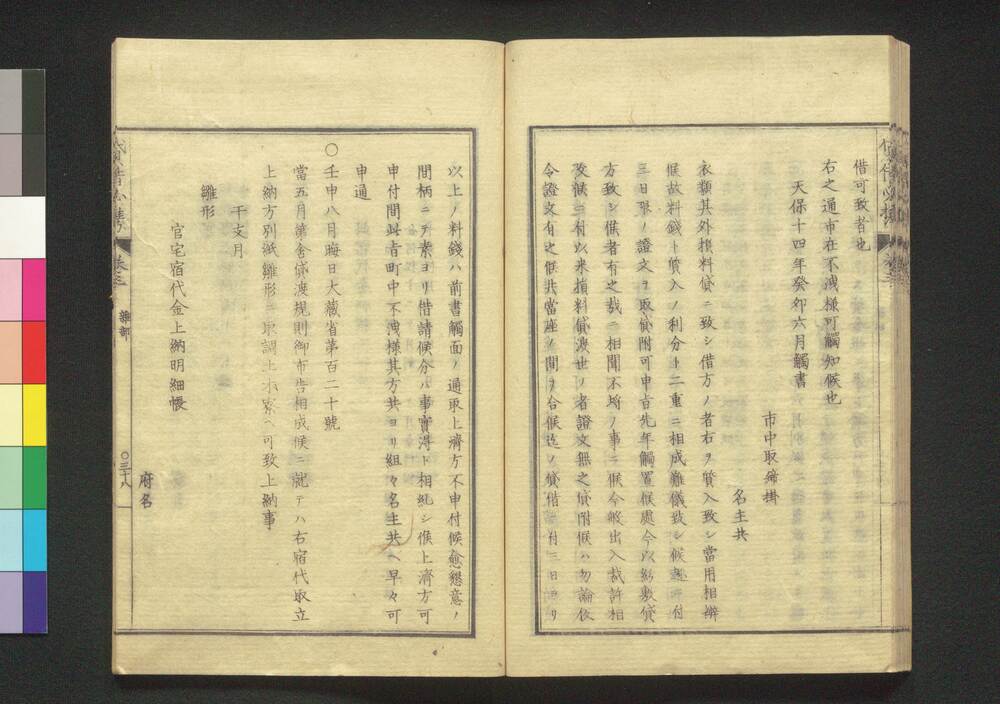 借可致者也
右之通市在不洩様可觸知候也
天保十四年癸卯六月觸書
市中取締掛
名主共
衣類其外損料貸ニ致シ借方ノ者右ヲ質入致シ當用相辨
候故料錢ト質入ノ利分ト二重ニ相成難儀致シ候趣ニ付
三日限ノ證文ヲ取貸附可申旨先年觸置候處今以紛敷貸
方致シ候者有之哉ニ相聞不埓ノ事ニ候今般出入裁許相
改候ニ付以来損料貸渡世ノ者證文無之貸附候ハ勿論假
令證文有之候共當座ノ間ヲ合候迄ノ貸借ニ付三日ヨリ
以上ノ料錢ハ前書觸面ノ通取上濟方不申付候愈懇意ノ
間柄ニテ素ヨリ借請候分ハ事實得ト相糺シ候上濟方可
申付間此旨町中不洩様其方共ヨリ組々名主共ヘ早々可
申通
〇壬申八月晦日大藏省第百二十號
當五月第舍貸渡規則御布告相成候ニ就テハ右宿代取立
上納方別紙雛形ニ取調土木寮ヘ可致上納事
雛形
干支月
官宅宿代金上納明細帳
府名
貸借必携
卷之三
雜部
〇三十八